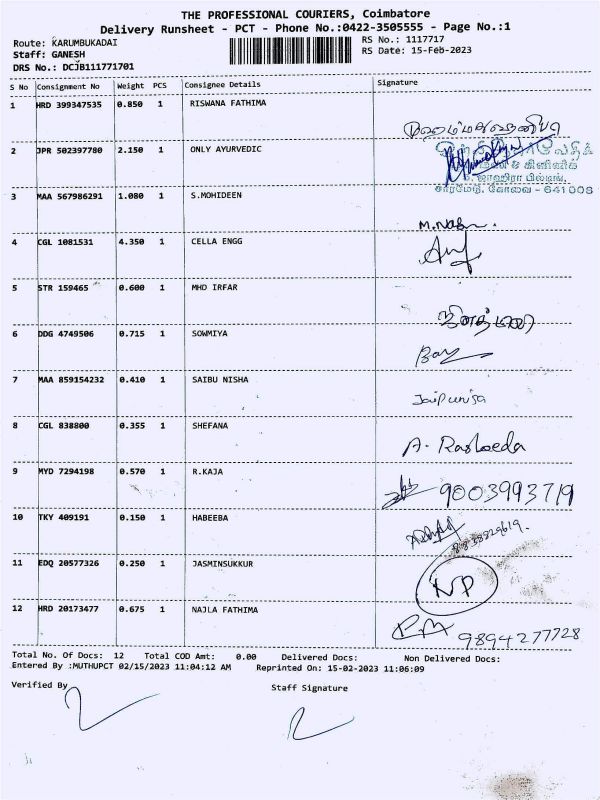 THE PROFESSIONAL COURIERS, Coimbatore
Delivery Runsheet - PCT - Phone No.:0422-3505555 - Page No.:1
Route: KARUMBUKADAI
Staff: GANESH
DRS No.: DCJB111771701
RS No.: 1117717
RS Date: 15-Feb-2023
S No Consignment No Weight PCS Consignee Details Signature
1 HRD 399347535 0.850 1 RISWANA FATHIMA
2 JPR 502397780 2.150 1 ONLY AYURVEDIC
சாரமேடு, கோவை - 641008
3 MAA 567986291 1.080 1 S.MOHIDEEN
4 CGL 1081531 4.350 1 CELLA ENGG
5 STR 159465 0.600 1 MHD IRFAR
6 DDG 4749506 0.715 1 SOWMIYA
7 MAA 859154232 0.410 1 SAIBU NISHA
Jaipunisa
8 CGL 838800 0.355 1 SHEFANA
A. Rasheeda
9 MYD 7294198 0.570 1 R.KAJA
9003993719
10 TKY 409191 0.150 1 HABEEBA
11 EDQ 20577326 0.250 1 JASMINSUKKUR
NP
12 HRD 20173477 0.675 1 NAJLA FATHIMA
9894277728
Total No. Of Docs: 12 Total COD Amt: 0.00 Delivered Docs: Non Delivered Docs:
Entered By :MUTHUPCT 02/15/2023 11:04:12 AM Reprinted On: 15-02-2023 11:06:09
Verified By
Staff Signature